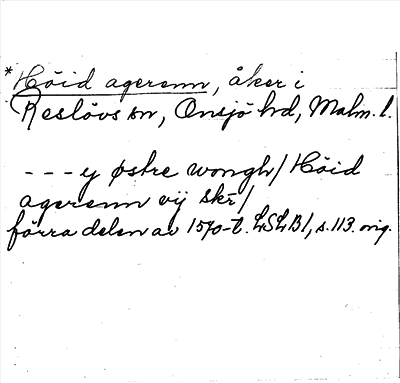 *Höid agerenn, åker i
Reslövs sn, Onsjö hd, Malm. l.
--- y østre wongh/ Höid
agerenn vij skr/
förra delen av 1570-t. LSLB1, s. 113. orig.